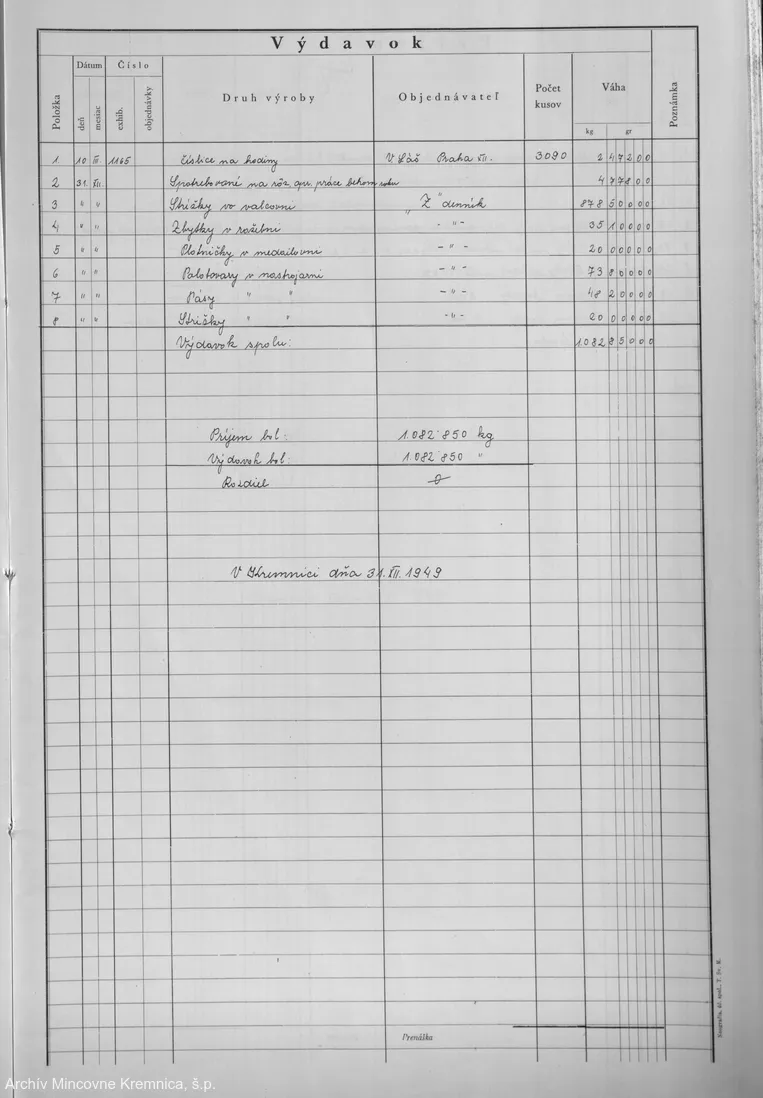 Výdavok
Položka
Dátum
deň
mesiac
Číslo
exhib.
objednávky
Druh výroby
Objednávateľ
Počet kusov
Váha
kg gr
Poznámka
1 10 III. 1165 Číslice na hodiny V Láš Praha XII. 3090 2 47200
2 31. XII. Spotrebované na rôz. opr. práce behom roku 4 77800
3 " " Strižky vo valcovni „Z" denník 878 50000
4 " " Zbytky v razební - " - 35 10000
5 " " Plotničky v medailovni - " - 20 00000
6 " " Polotovary v nástrojarni - " - 73 80000
7 " " Pásy " " - " - 48 20000
8 " " Strižky " " - " - 20 00000
Výdavok spolu: 1.082 85000
Príjem bol: 1.082˙850 kg
Výdavok bol: 1.082˙850 "
Rozdiel 0
V Kremnici dňa 31. XII. 1949
Prenáška
Archív Mincovne Kremnica, š.p.